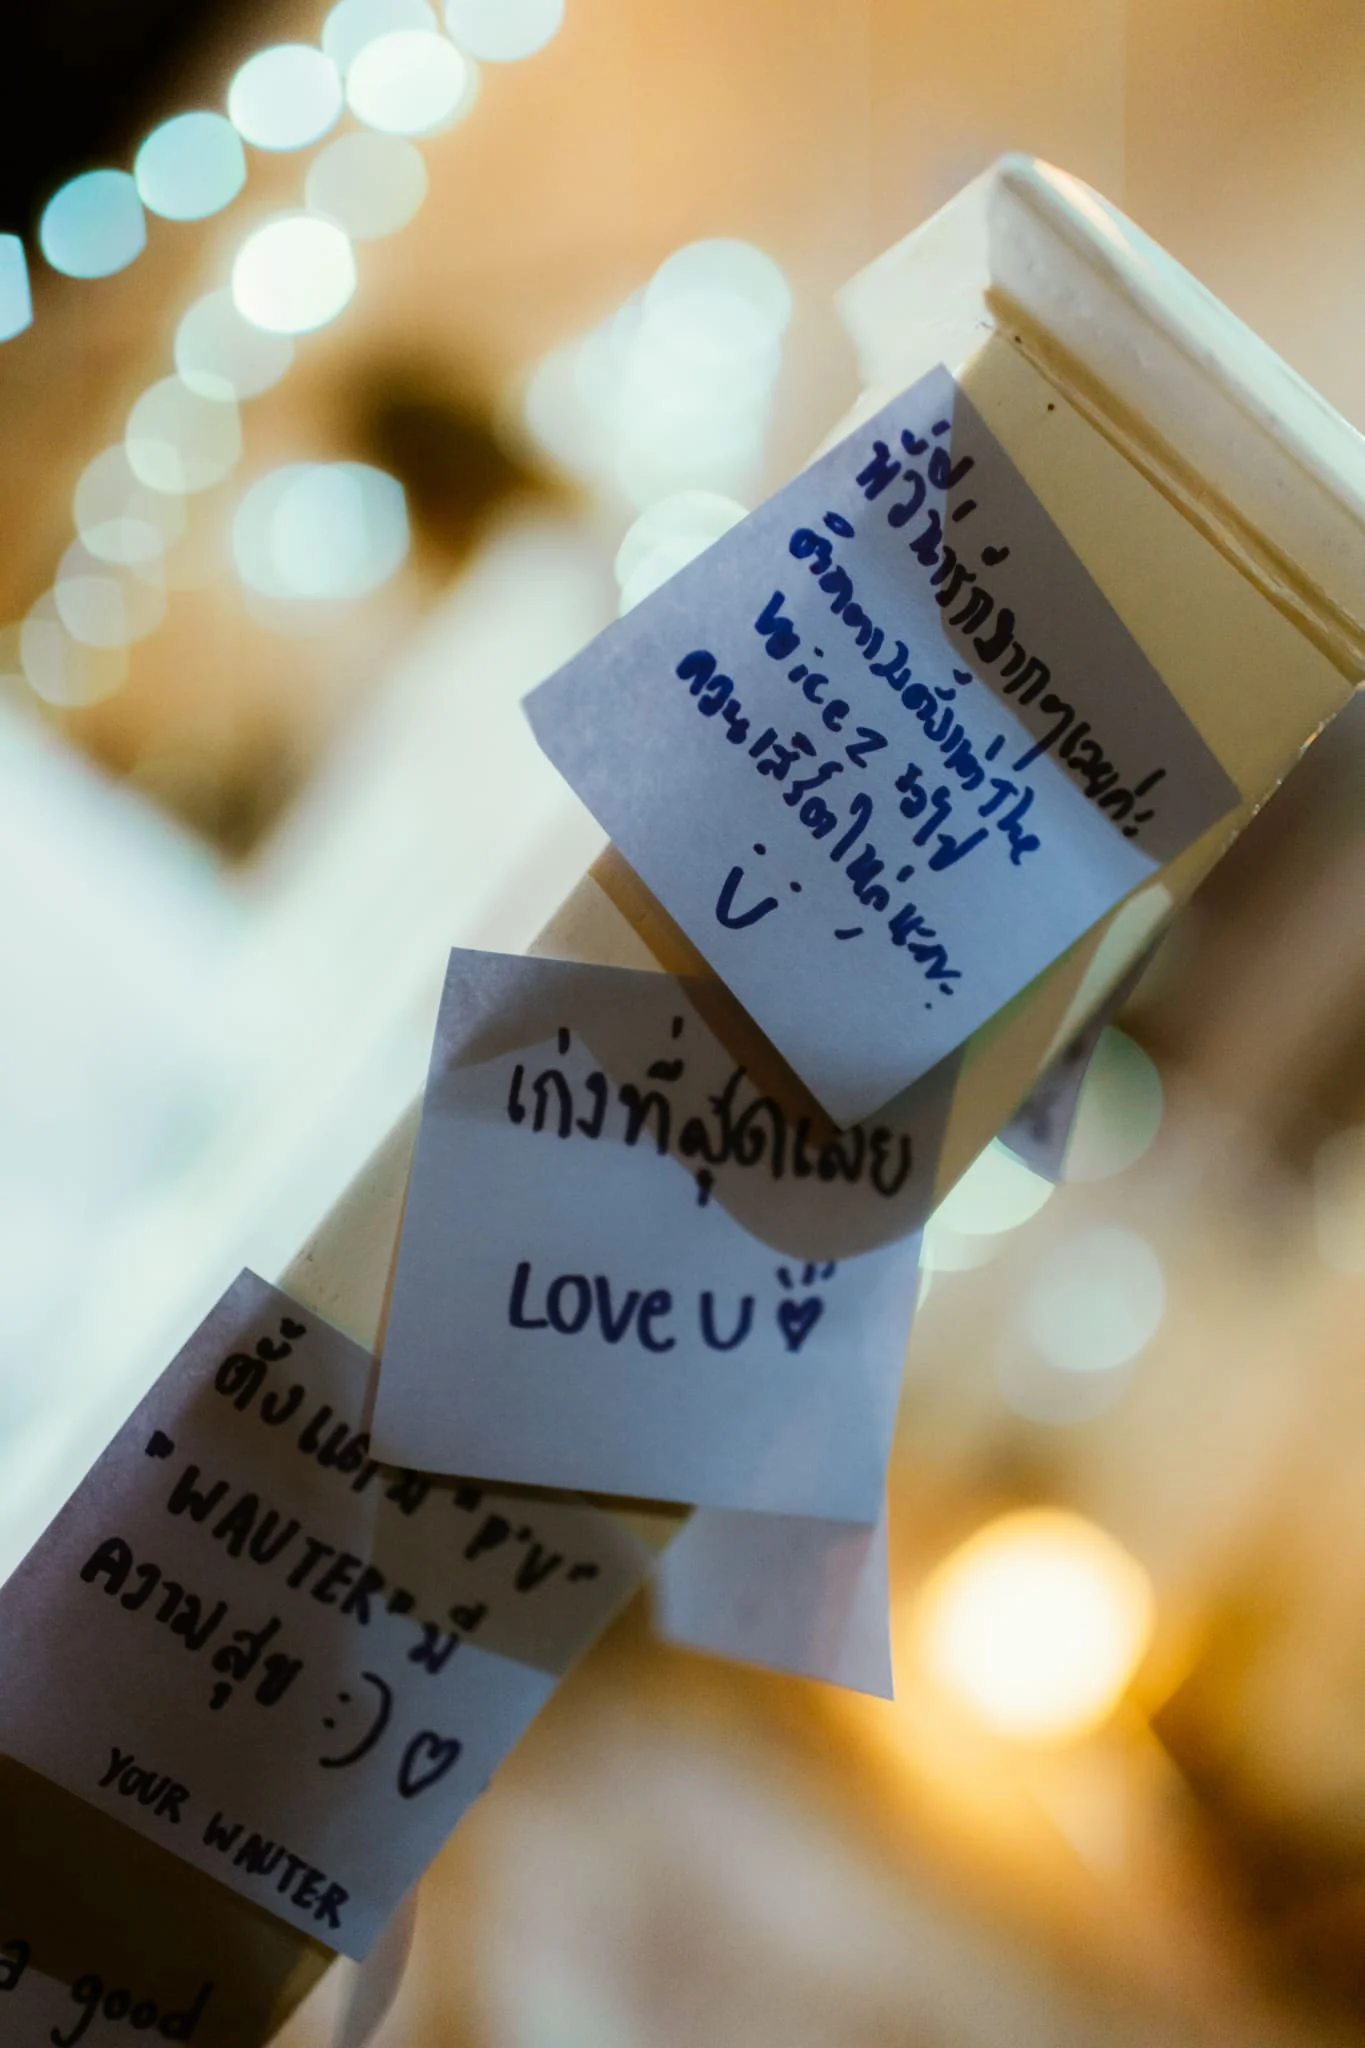 พี่วีน่ารักมากๆเลยค่ะ
ติดตามตั้งแต่ The
Voice 2 รอไป
คอนเสิร์ตใหญ่นะคะ
เก่งที่สุดเลย
LOVE U
ตั้งแต่มี "P'V"
"WAUTER" มี
ความสุข :)
YOUR WAUTER
a good